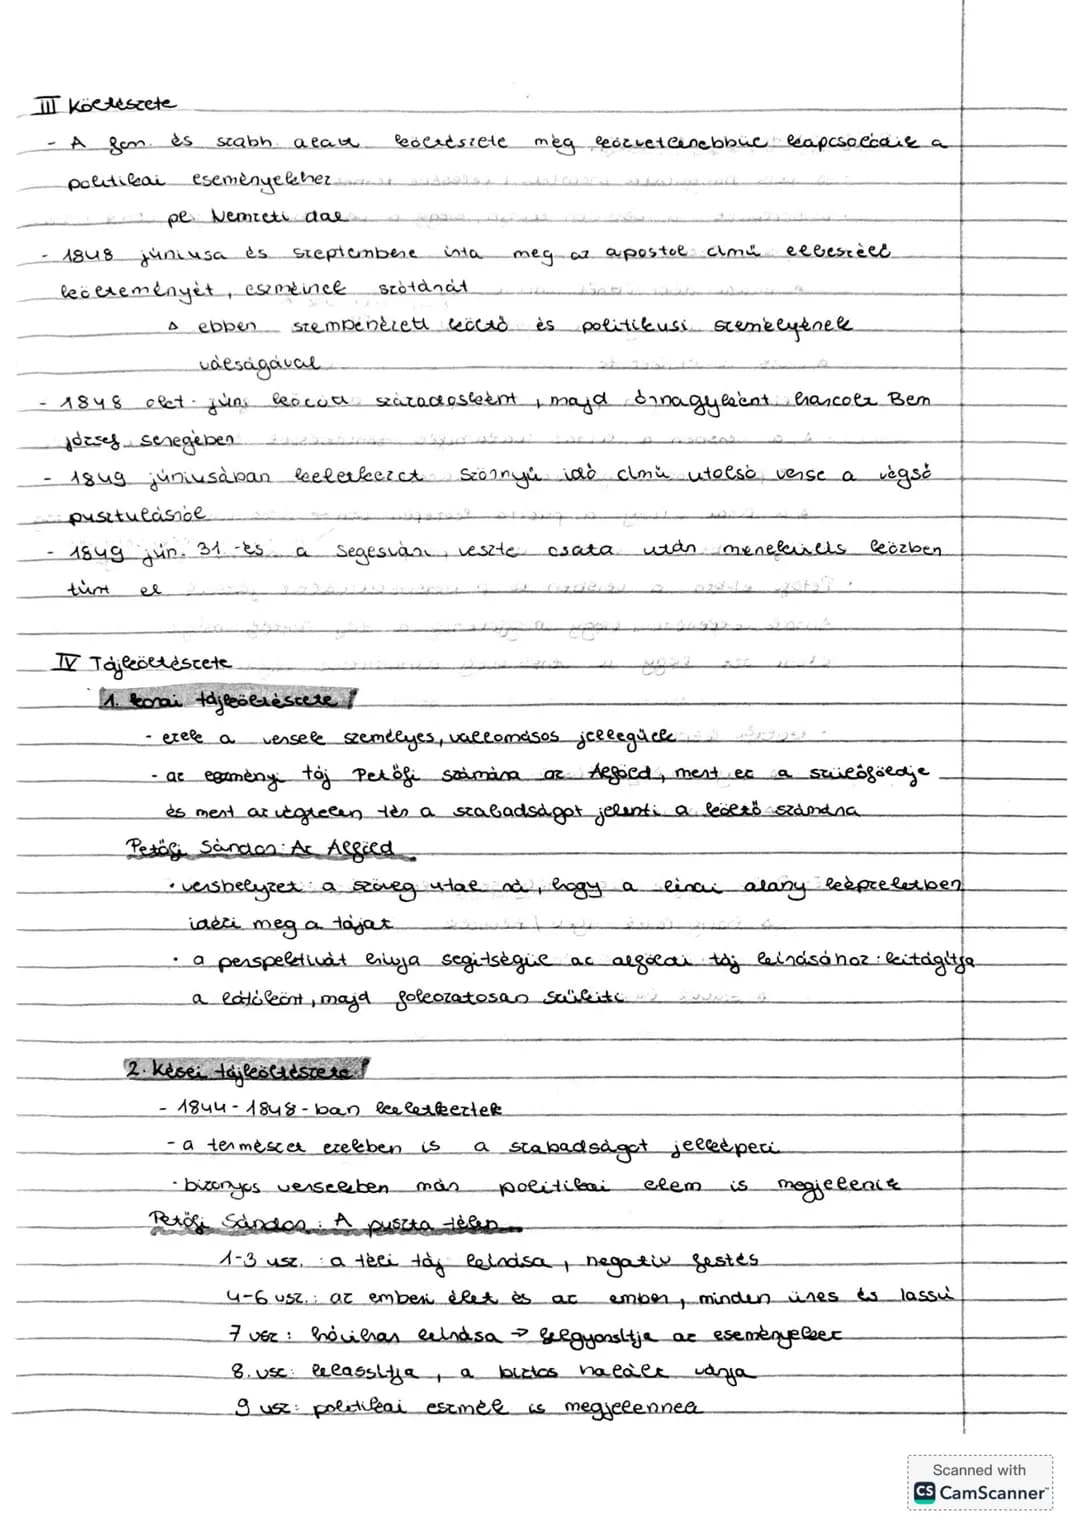 III Költészete
- A forr. és szabh. alatt költészete még közvetlenebbül kapcsolódik a
politikai eseményekhez
pl Nemzeti dal
- 1848 júniusa és szeptembere írta meg az apostol című elbeszélő
költeményét, eszméinek szótárát
ebben szembenézett költő és politikusi személyének
válságával
- 1848 okt. jún. között századosként, majd őrnagyként harcolt Bem
József seregében
- 1849 júniusában keletkezett Szörnyű idő című utolsó verse a végső
pusztulásról
- 1849 jún. 31-és a Segesvári, veszte csata után menekülés közben
tűnt el
IV Tájköltészete
1. korai tájköltészete!
- ezek a versek személyes, vallomásos jellegűek
- az eszményi táj Petőfi számára az Alföld, mert ez a szülőföldje
és mert az végtelen tér a szabadságot jelenti a költő számára
Petőfi Sándor: Az Alföld
• vershelyzet: a szöveg utal rá, hogy a lírai alany képzeletben
idézi meg a tájat
• a perspektívát hívja segítségül az alföldi táj leírásához: kitágítja
a látókört, majd fokozatosan szűkíti
2. Kései tájköltészete!
- 1844-1848-ban keletkeztek
- a természet ezekben is a szabadságot jelképezi
- bizonyos versekben már politikai elem is megjelenik
Petőfi Sándor: A puszta télen
1-3 vsz. : a téli táj leírása, negatív festés
4-6 vsz.: az emberi élet és az ember, minden üres és lassú
7 vsz: hóvihar leírása → felgyorsítja az eseményeket
8. vsz: lelassítja, a biztos halált várja
9 vsz: politikai eszmék is megjelennek
Scanned with
CS CamScanner